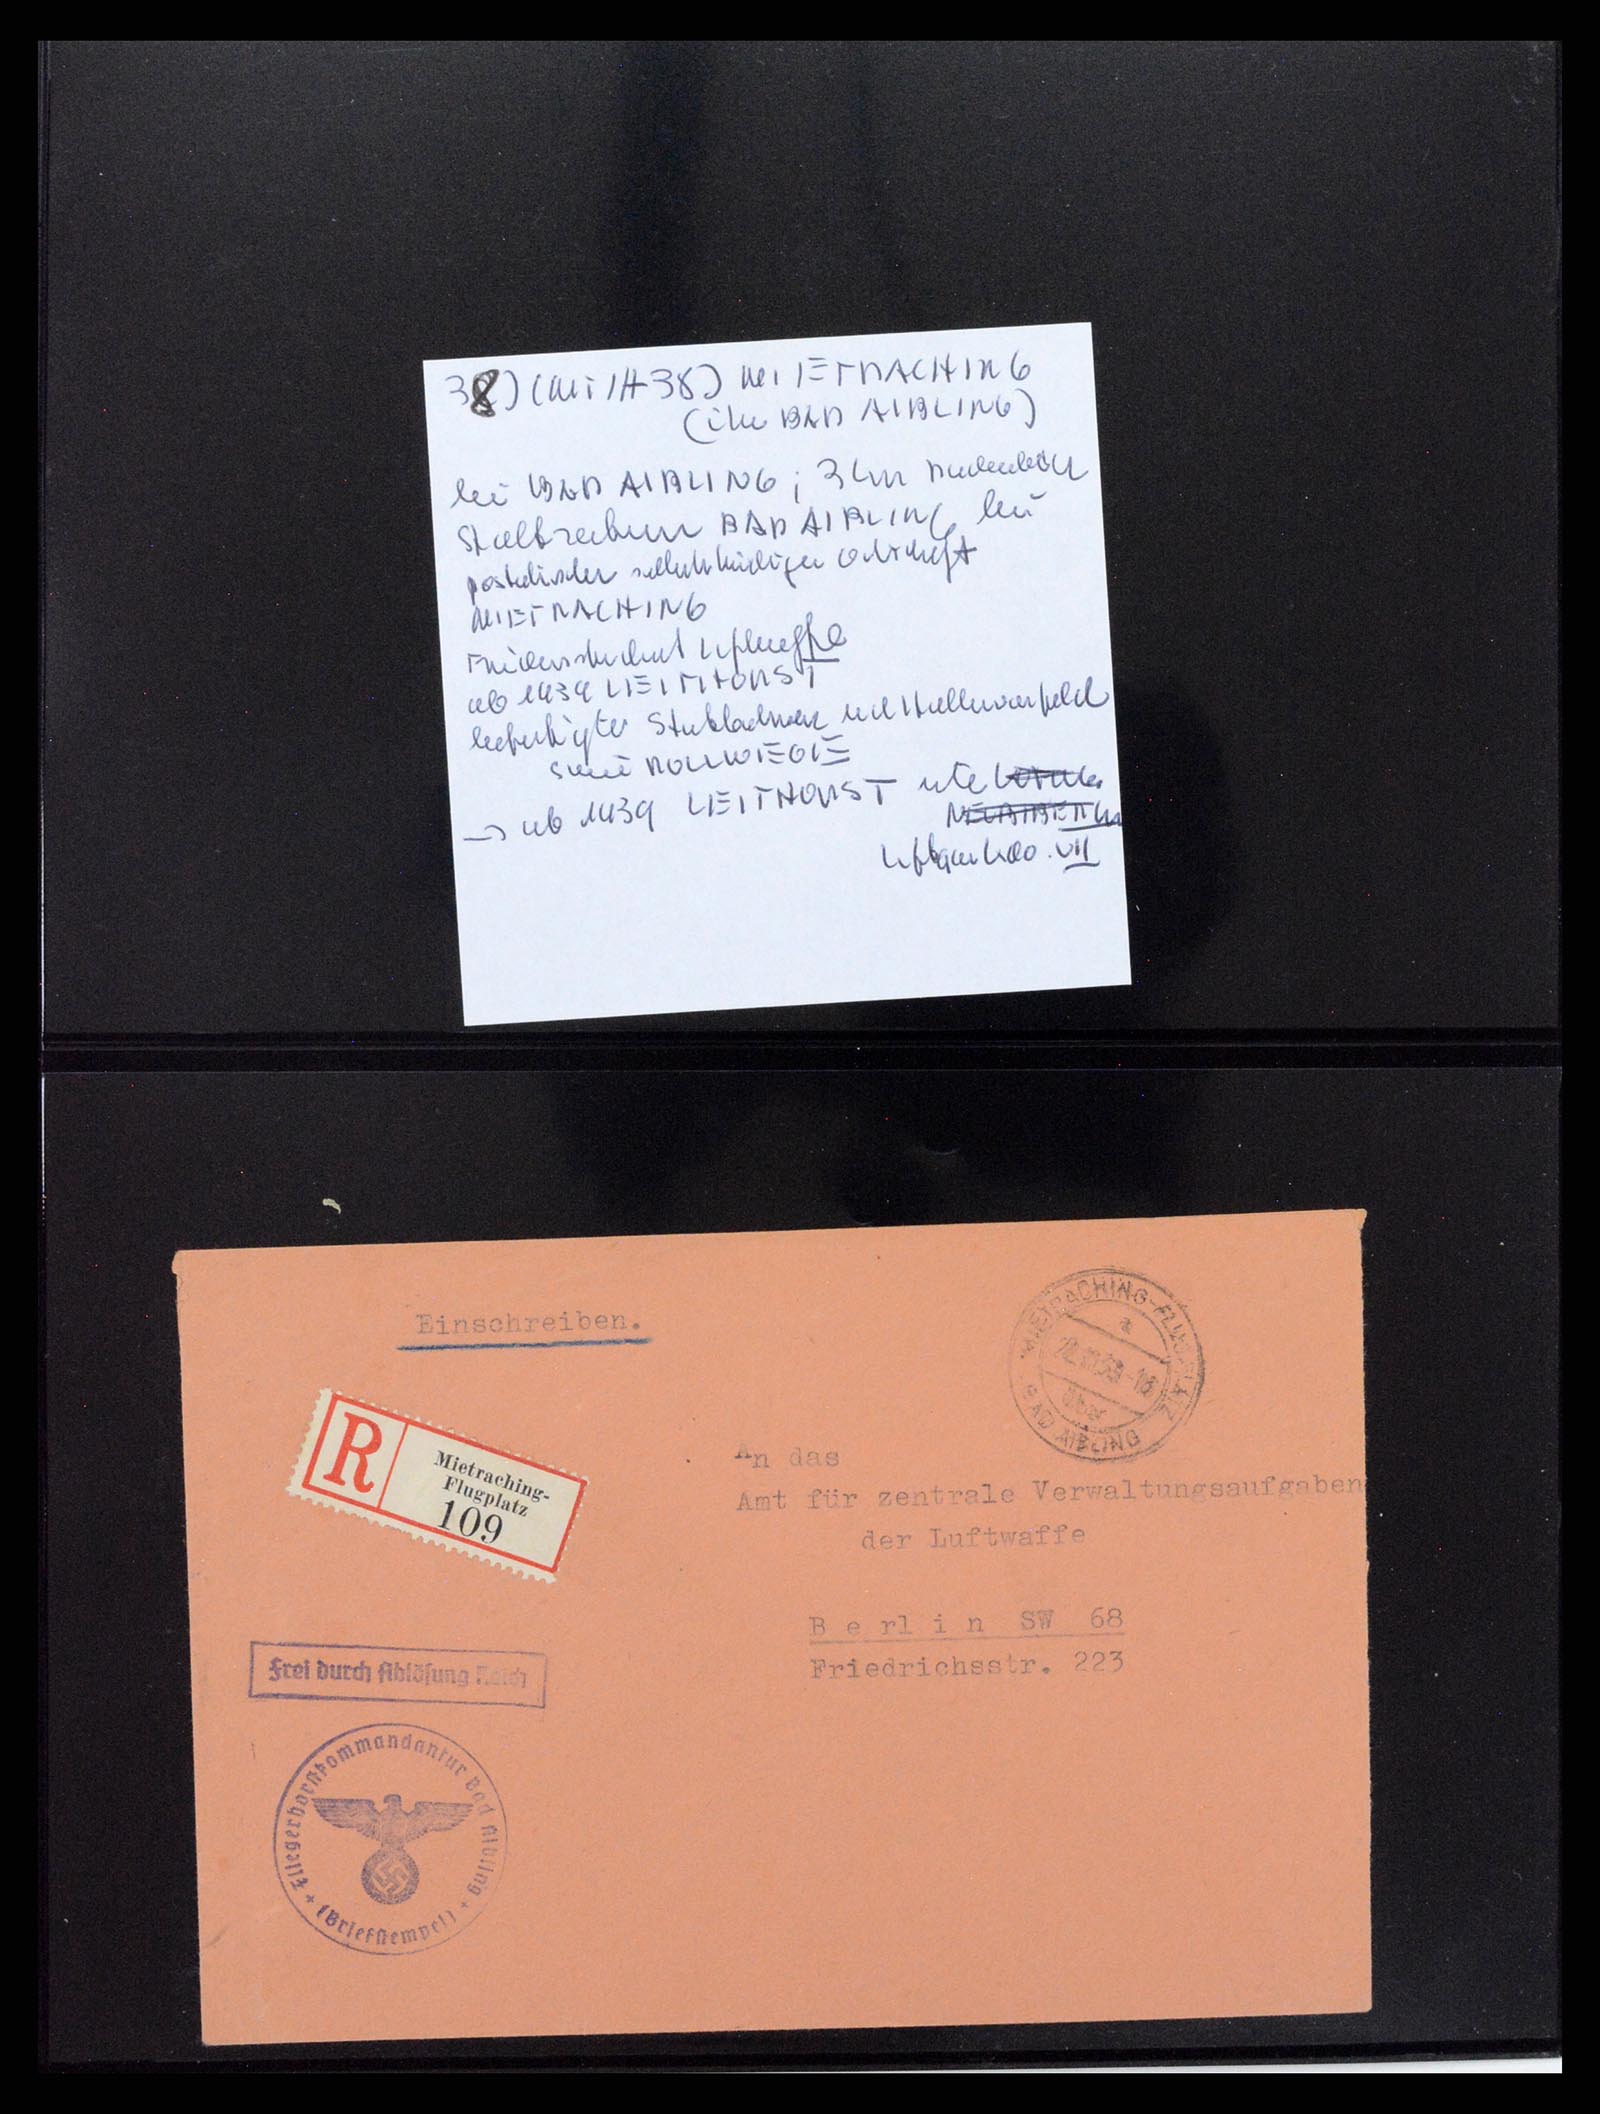 38) (MIH 38) MIETRACHING
(über BAD AIBLING)
bei BAD AIBLING; 3 km
BAD AIBLING bei
postalischer selbständiger Ortschaft
MIETRACHING
Friedensstandort Luftwaffe
ab 1939 LEITHORST
sowie ROLLWIEGE
→ ab 1939 LEITHORST
Luftgau Kdo. VII
Einschreiben.
MIETRACHING-FLUGPLATZ
a
-18
über
BAD AIBLING
R
Mietraching-
Flugplatz
109
An das
Amt für zentrale Verwaltungsaufgaben
der Luftwaffe
Berlin SW 68
Friedrichsstr. 223
Frei durch Ablösung Reich
Fliegerhorstkommandantur Bad Aibling
(Briefstempel)